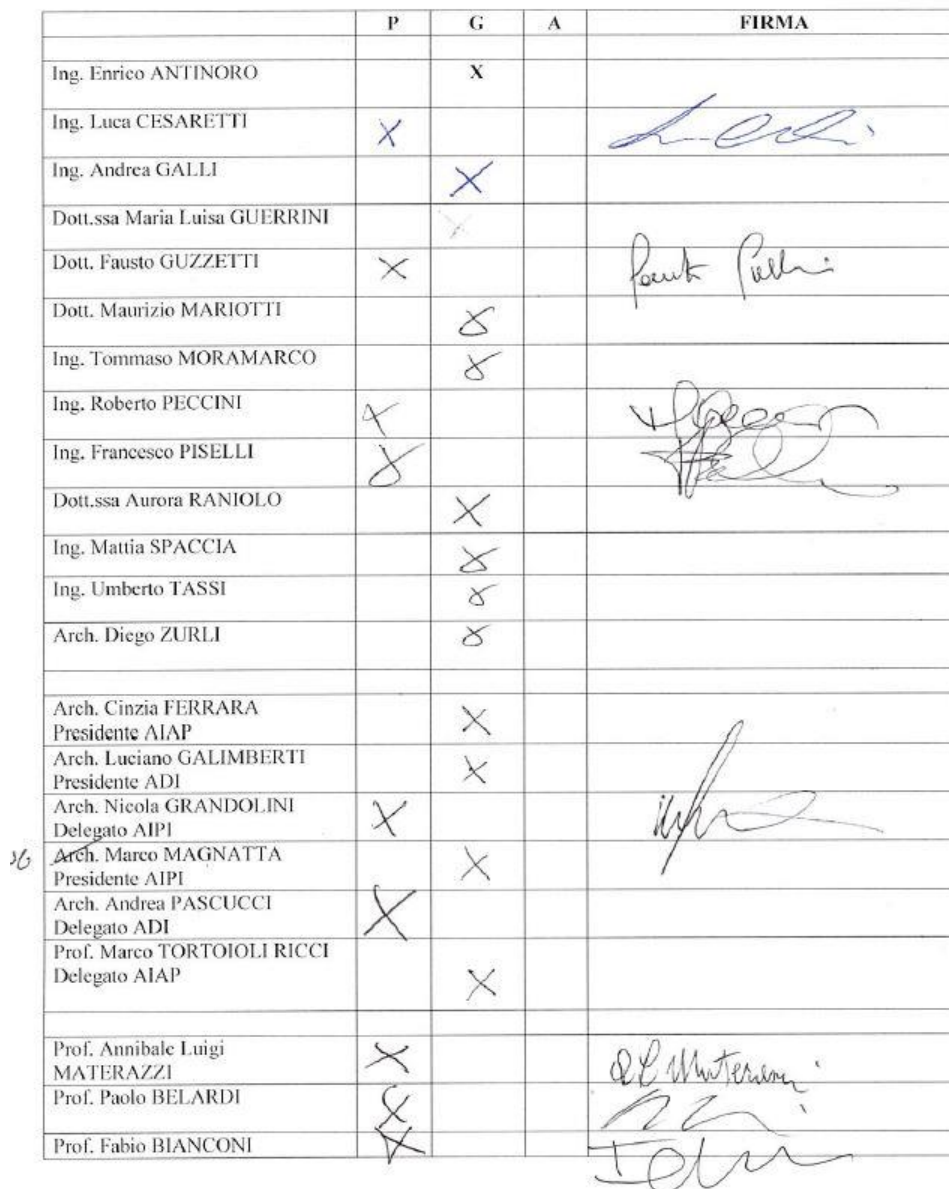 P G A FIRMA
Ing. Enrico ANTINORO X
Ing. Luca CESARETTI X
Ing. Andrea GALLI X
Dott.ssa Maria Luisa GUERRINI X
Dott. Fausto GUZZETTI X
Dott. Maurizio MARIOTTI X
Ing. Tommaso MORAMARCO X
Ing. Roberto PECCINI X
Ing. Francesco PISELLI X
Dott.ssa Aurora RANIOLO X
Ing. Mattia SPACCIA X
Ing. Umberto TASSI X
Arch. Diego ZURLI X
Arch. Cinzia FERRARA X
Presidente AIAP
Arch. Luciano GALIMBERTI X
Presidente ADI
Arch. Nicola GRANDOLINI X
Delegato AIPI
Arch. Marco MAGNATTA X
Presidente AIPI
Arch. Andrea PASCUCCI X
Delegato ADI
Prof. Marco TORTOIOLI RICCI
Delegato AIAP X
Prof. Annibale Luigi X
MATERAZZI
Prof. Paolo BELARDI X
Prof. Fabio BIANCONI X